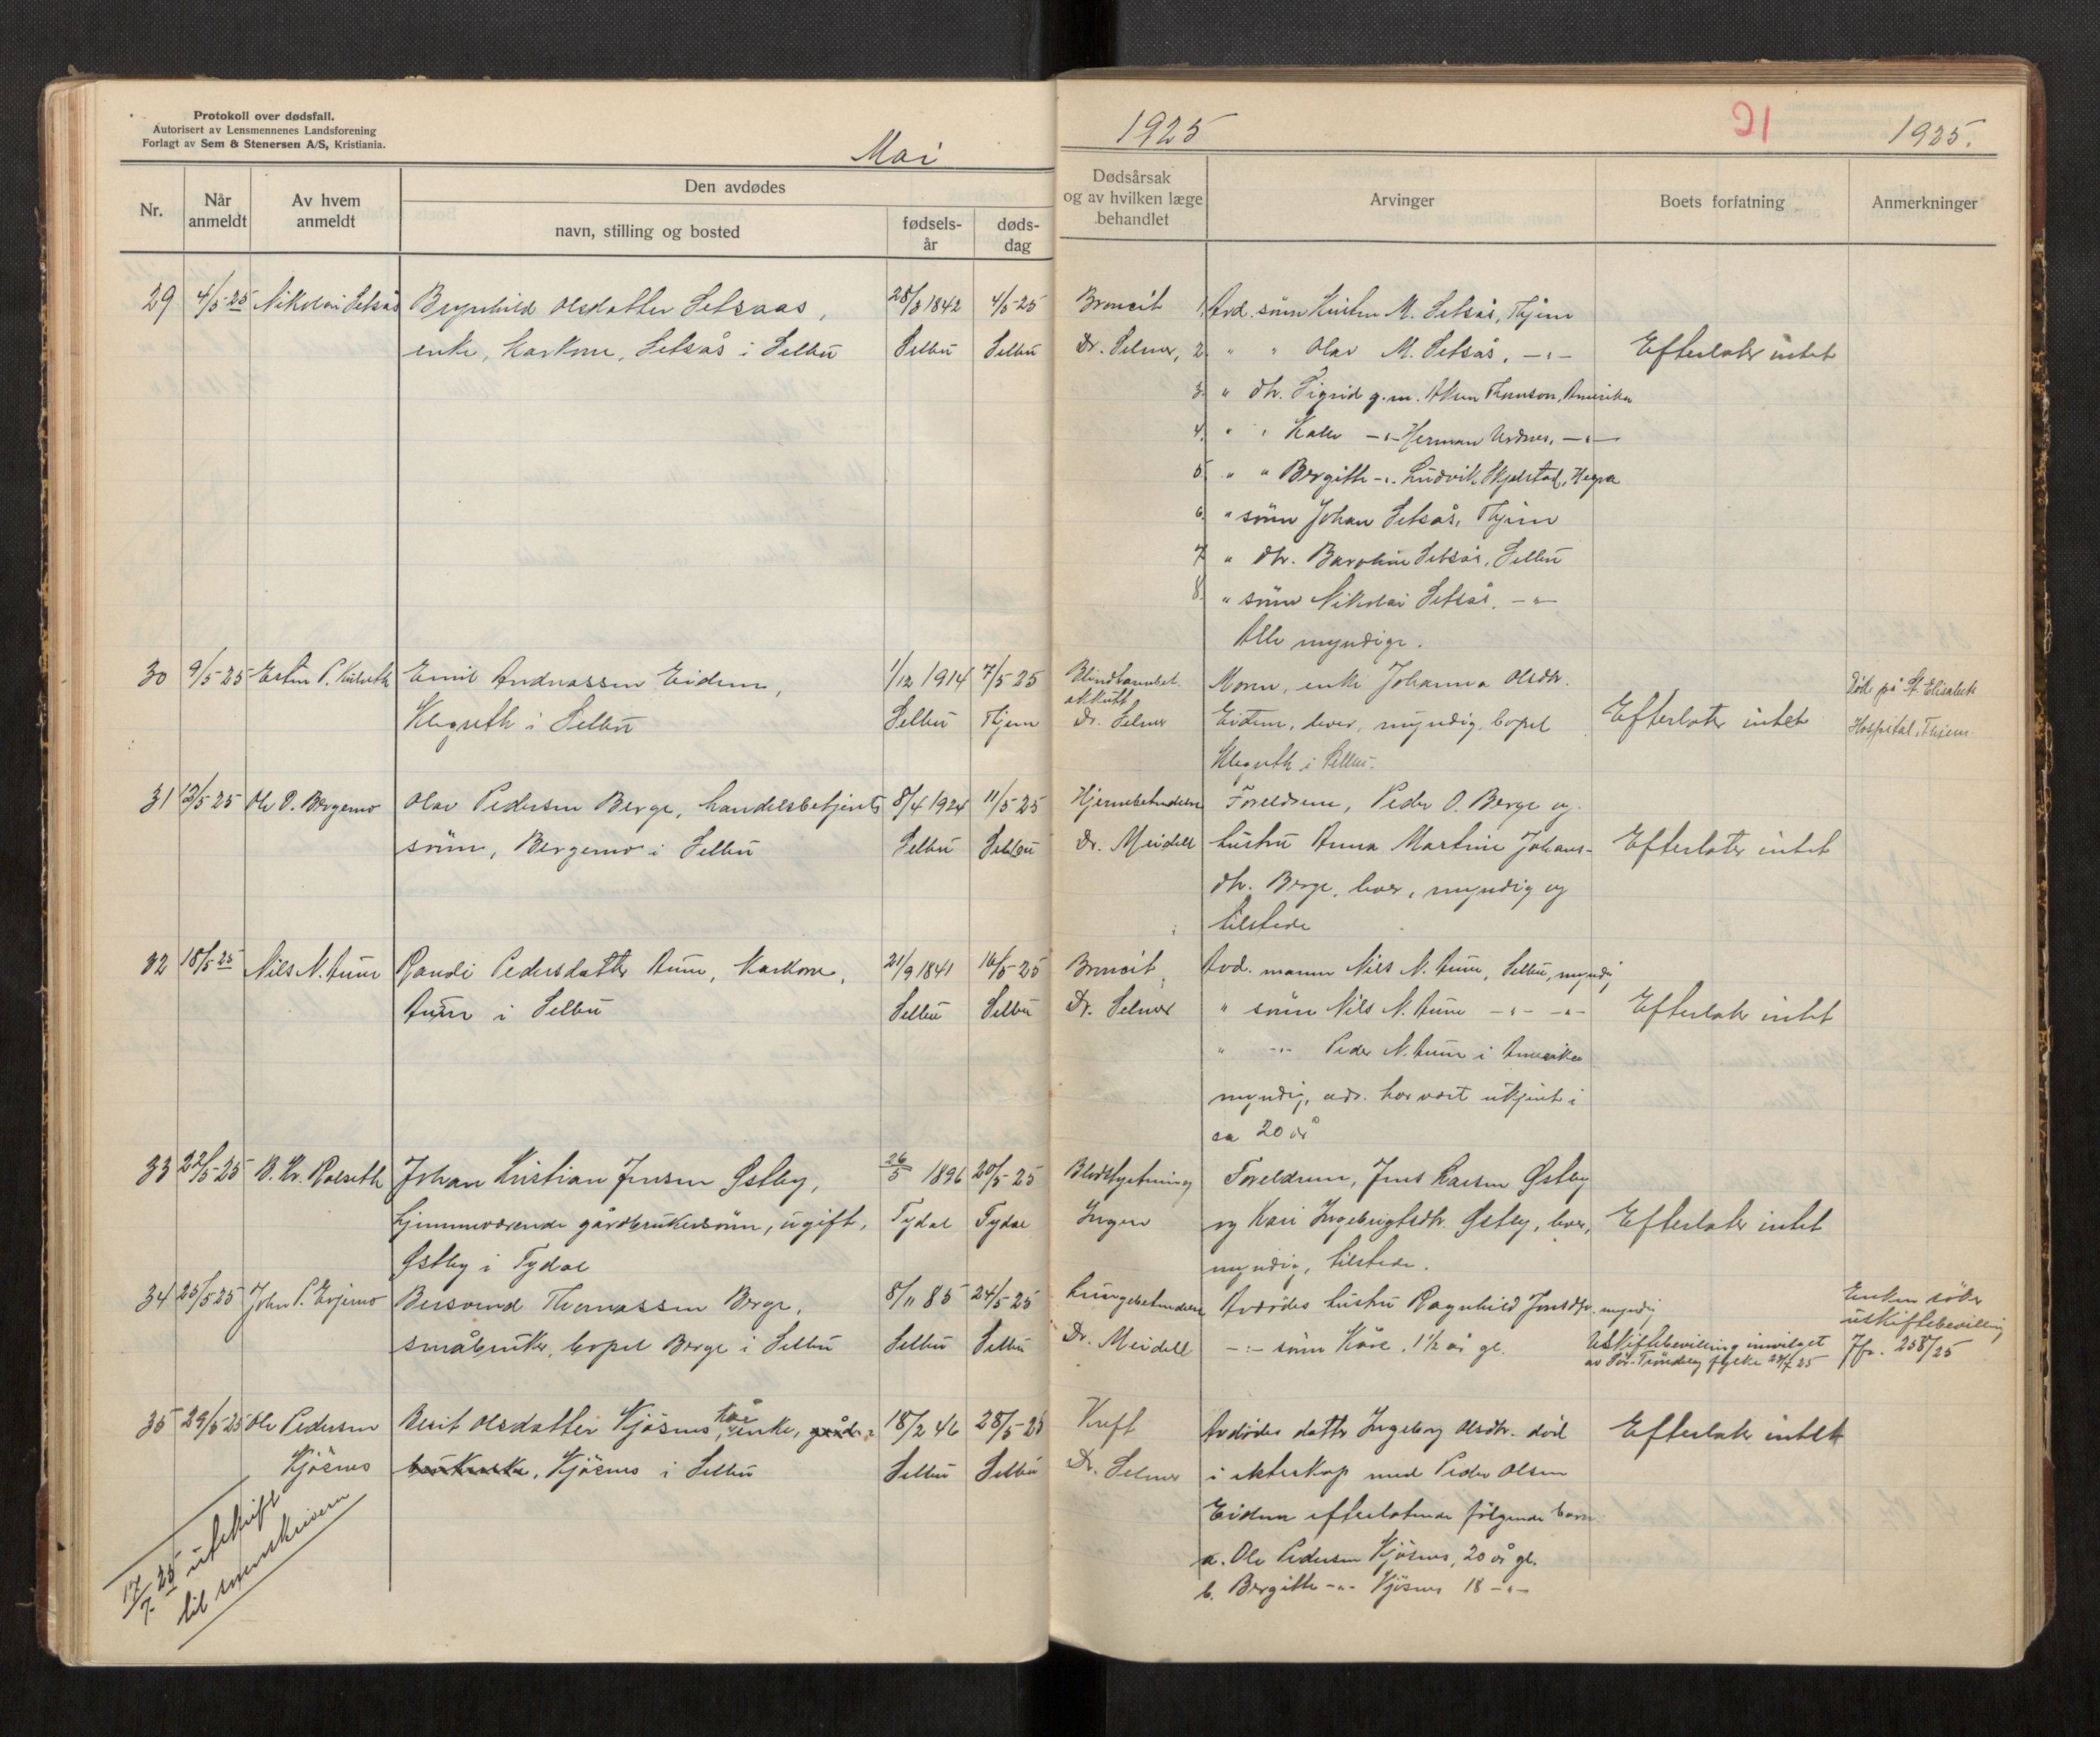 Protokoll over dødsfall.
Autorisert av Lensmennenes Landsforening
Forlagt av Sem & Stenersen A/S, Kristiania.
Mai
1925
21
1925.
Nr.
Når anmeldt
Av hvem anmeldt
Den avdødes
navn, stilling og bosted
fødsels-år
døds-dag
Dødsårsak og av hvilken læge behandlet
Arvinger
Boets forfatning
Anmerkninger
29 4/5-25 Nikolai Setsås Olsdatter Setsaas, 28/3 1842 4/5-25 Broncit 1. Avd. sönn M. Setsås, Thjem
enke, karkone, Setsås i Selbu Selbu Selbu Dr. Selmer, 2. " " Olav M. Setsås, -"- Efterlater intet
3. " dtr. Sigrid g.m. Amerika
4. " " -"- Herman -"-
5. " " Bergitte -"- Ludvik Skjelstad, Hegra
6. " sönn Johan Setsås, Thjem
7. " dtr. Setsås, Selbu
8. " sönn Nikolai Setsås, -"-
Alle myndige.
30 9/5-25 Emil Andreassen Eidem, 1/12 1914 7/5-25 Blindtarmbet. Moren, enke Johanna Olsdtr. Döde på St. Elisabeth
i Selbu Selbu Thjem akkutt Dr. Selmer Eidem, lever, myndig, bopel Efterlater intet Hospital, Thjem.
i Selbu.
31 13/5-25 Ole P. Bergemo Olav Pedersen Berge, handelsbetjents 8/4 1924 11/5-25 Hjernebetendelse Foreldrene, Peder O. Berge og
sönn, Bergemo i Selbu Selbu Selbu Dr. Meidell hustru Anna Martine Johans- Efterlater intet
dtr. Berge, lever, myndig og
tilstede
32 18/5-25 Nils N. Aune Randi Pedersdatter Aune, karkone, 21/9 1841 16/5-25 Broncit Avd. mann Nils N. Aune, Selbu, myndig
Aune i Selbu Selbu Selbu Dr. Selmer " sönn Nils N. Aune -"- -"- Efterlater intet
" -"- Peder N. Aune i Amerika
myndig, adr. har vært ukjent i
ca 20 år
33 22/5-25 B. Kr. Rolseth Johan Kristian Jensen Østby, 26/5 1896 20/5-25 Blodstyrtning Foreldrene, Jens Larsen Østby
hjemmeværende gårdbrukersönn, ugift, Tydal Tydal Ingen og Kari Ingebrigtsdtr. Østby, lever, Efterlater intet
Østby i Tydal myndig, tilstede.
34 25/5-25 John P. Evjemo Bersvend Thomassen Berge, 8/11 85 24/5-25 Lungebetendelse Avdödes hustru Ragnhild Jonsdtr. myndig Enken söker
småbruker, bopel Berge i Selbu Selbu Selbu Dr. Meidell -"- sönn Kåre, 1½ år gl. Uskiftebevilling innvilget uskiftebevilling
av Sör-Tröndelag fylke 24/7 25 Jfr. 258/25
35 29/5-25 Ole Pedersen Berit Olsdatter Kjösnes, kår enke, gårdbrukerske, 18/2 46 28/5-25 Kreft Avdödes datter Ingeborg Olsdtr. död Efterlater intet
Kjösnes Kjösnes i Selbu Selbu Selbu Dr. Selmer i ekteskap med Peder Olsen
Eidem efterlatende fölgende barn
a. Ole Pedersen Kjösnes, 20 år gl.
b. Bergitte -"- Kjösnes 18 -"-
17/7-25 utskrift
til sorenskriveren